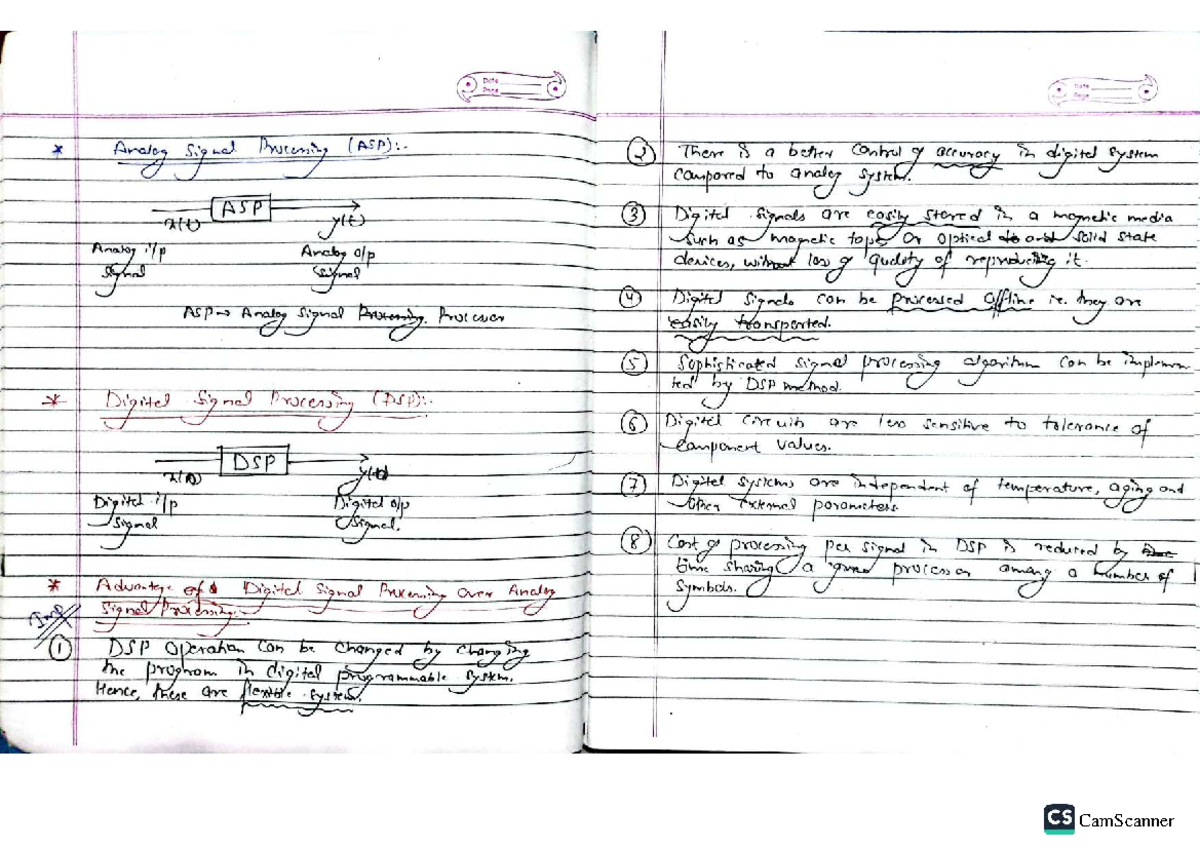 Date
Page
* Analog Signal Processing (ASP):-
ASP
x(t) y(t)
Analog i/p Analog o/p
Signal Signal
ASP → Analog Signal Processing. Processor
* Digital Signal Processing (DSP):-
DSP
x(n)
Digital i/p Digital o/p
Signal Signal.
* Advantage of Digital Signal Processing over Analog
Signal Processing.
Imp
① DSP operation can be changed by changing
the program in digital programmable system.
Hence, these are flexible system.
Date
Page
② There is a better control of accuracy in digital system
compared to analog system.
③ Digital signals are easily stored in a magnetic media
such as magnetic tape or optical or solid state
devices, without loss of quality of reproducing it.
④ Digital signals can be processed offline i.e. they are
easily transported.
⑤ Sophisticated signal processing algorithm can be implemen
ted by DSP method.
⑥ Digital circuits are less sensitive to tolerance of
component values.
⑦ Digital systems are independent of temperature, aging and
other external parameters.
⑧ Cost of processing per signal in DSP is reduced by
time sharing a given processor among a number of
symbols.
CS CamScanner